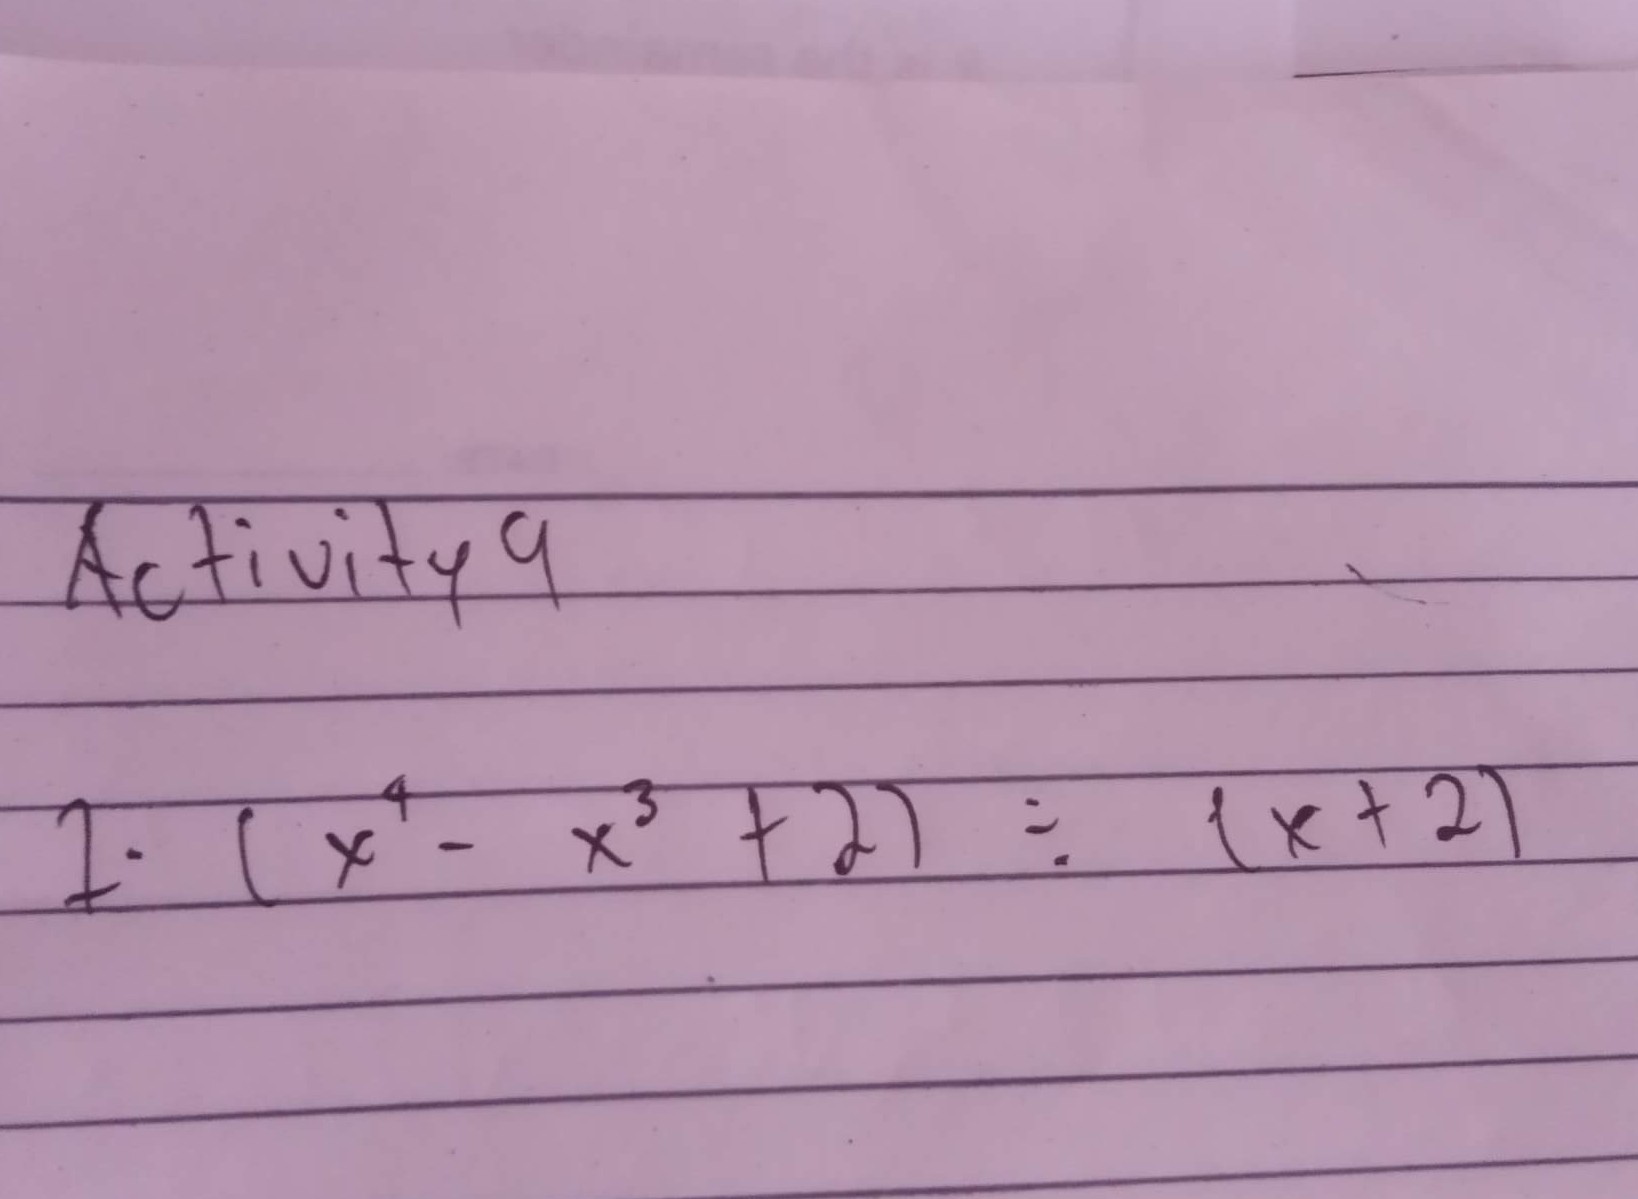 Activity 9
1. (x⁴ - x³ + 2) ÷ (x + 2)